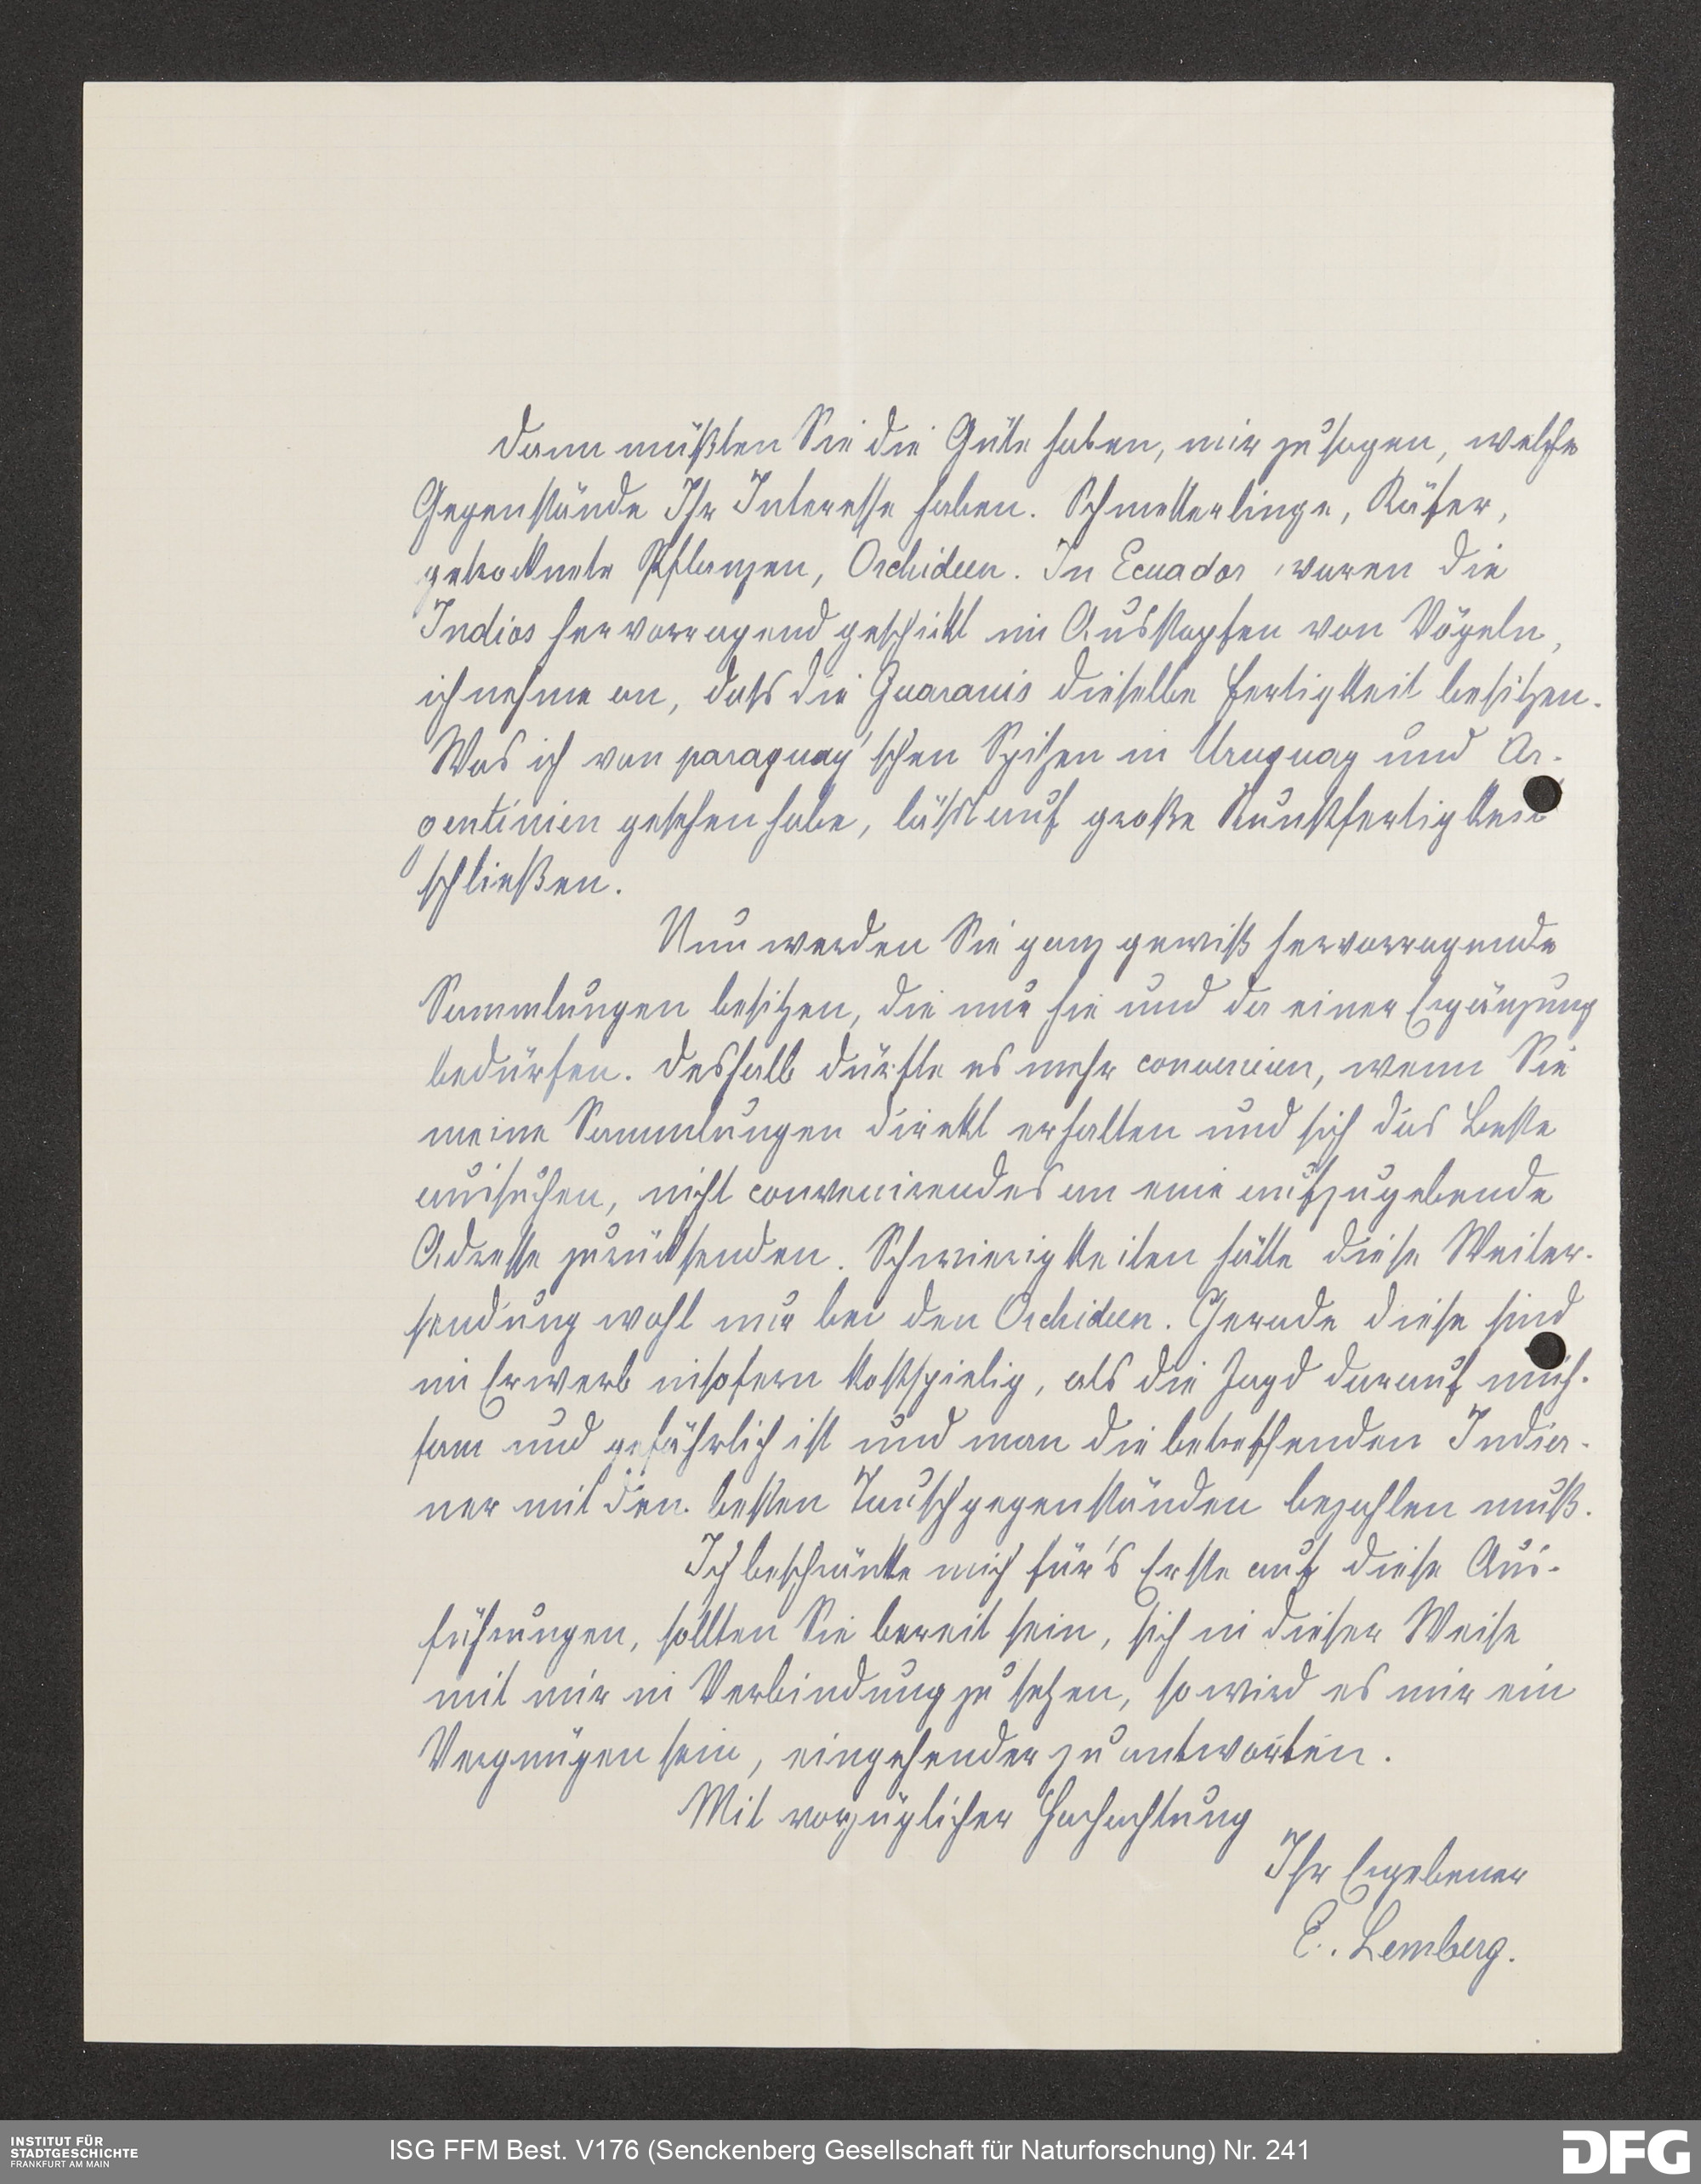 Dann müßten Sie die Güte haben, mir zu sagen, welche
Gegenstände Ihr Interesse haben. Schmetterlinge, Käfer,
getrocknete Pflanzen, Orchideen. In Ecuador waren die
Indios hervorragend geschickt im Ausstopfen von Vögeln,
ich nehme an, dass die Guaranis dieselbe Fertigkeit besitzen.
Was ich von paraguay'schen Spitzen in Uruguay und Ar-
gentinien gesehen habe, lässt auf große Kunstfertigkeit
schließen.
Nun werden Sie ganz gewiß hervorragende
Sammlungen besitzen, die nur hie und da einer Ergänzung
bedürfen. Deshalb dürfte es mehr convenieren, wenn Sie
meine Sammlungen direkt erhalten und sich das Beste
aussuchen, nicht convenirendes an eine aufzugebende
Adresse zurücksenden. Schwierigkeiten hätte diese Weiter-
sendung wohl nur bei den Orchideen. Gerade diese sind
im Erwerb insofern kostspielig, als die Jagd darauf müh-
sam und gefährlich ist und man die betreffenden India-
ner mit den besten Tauschgegenständen bezahlen muß.
Ich beschränke mich für's Erste auf diese Aus-
führungen, sollten Sie bereit sein, sich in dieser Weise
mit mir in Verbindung zu setzen, so wird es mir ein
Vergnügen sein, eingehender zu antworten.
Mit vorzüglicher Hochachtung
Ihr Ergebener
E. Lemberg.
INSTITUT FÜR
STADTGESCHICHTE
FRANKFURT AM MAIN
ISG FFM Best. V176 (Senckenberg Gesellschaft für Naturforschung) Nr. 241
DFG